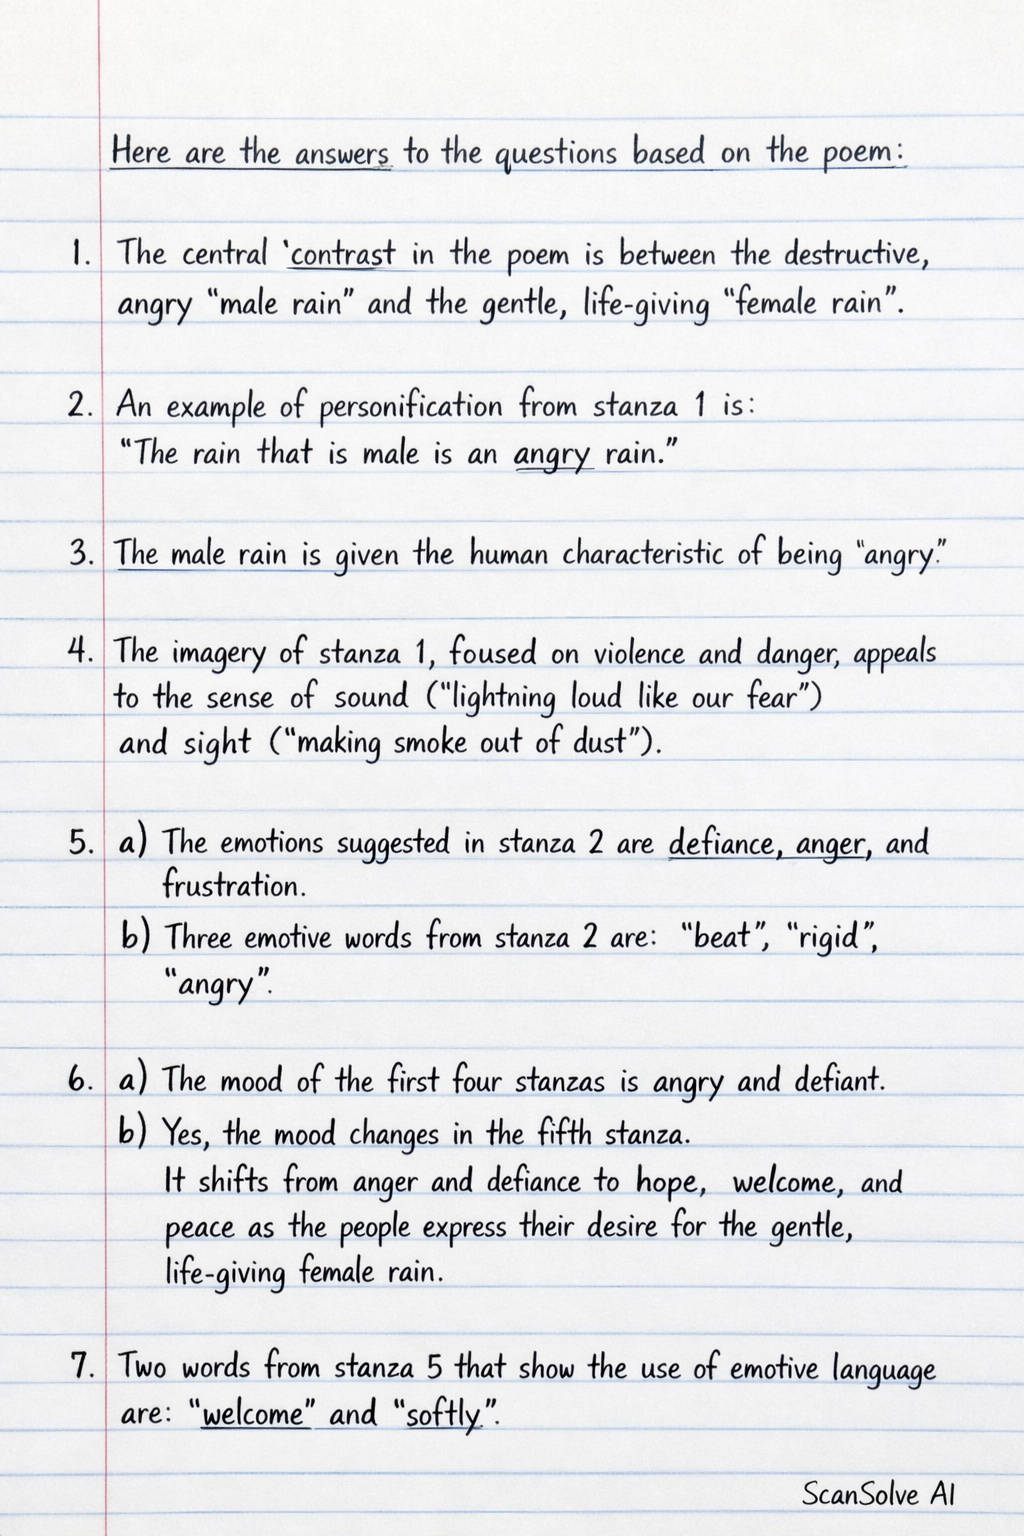 Here are the answers to the questions based on the poem:
1. The central 'contrast in the poem is between the destructive,
angry “male rain” and the gentle, life-giving “female rain”.
2. An example of personification from stanza 1 is:
“The rain that is male is an angry rain.”
3. The male rain is given the human characteristic of being “angry.”
4. The imagery of stanza 1, foused on violence and danger, appeals
to the sense of sound (“lightning loud like our fear”)
and sight (“making smoke out of dust”).
5. a) The emotions suggested in stanza 2 are defiance, anger, and
frustration.
b) Three emotive words from stanza 2 are: “beat”, “rigid”,
“angry”.
6. a) The mood of the first four stanzas is angry and defiant.
b) Yes, the mood changes in the fifth stanza.
It shifts from anger and defiance to hope, welcome, and
peace as the people express their desire for the gentle,
life-giving female rain.
7. Two words from stanza 5 that show the use of emotive language
are: “welcome” and “softly”.
ScanSolve AI